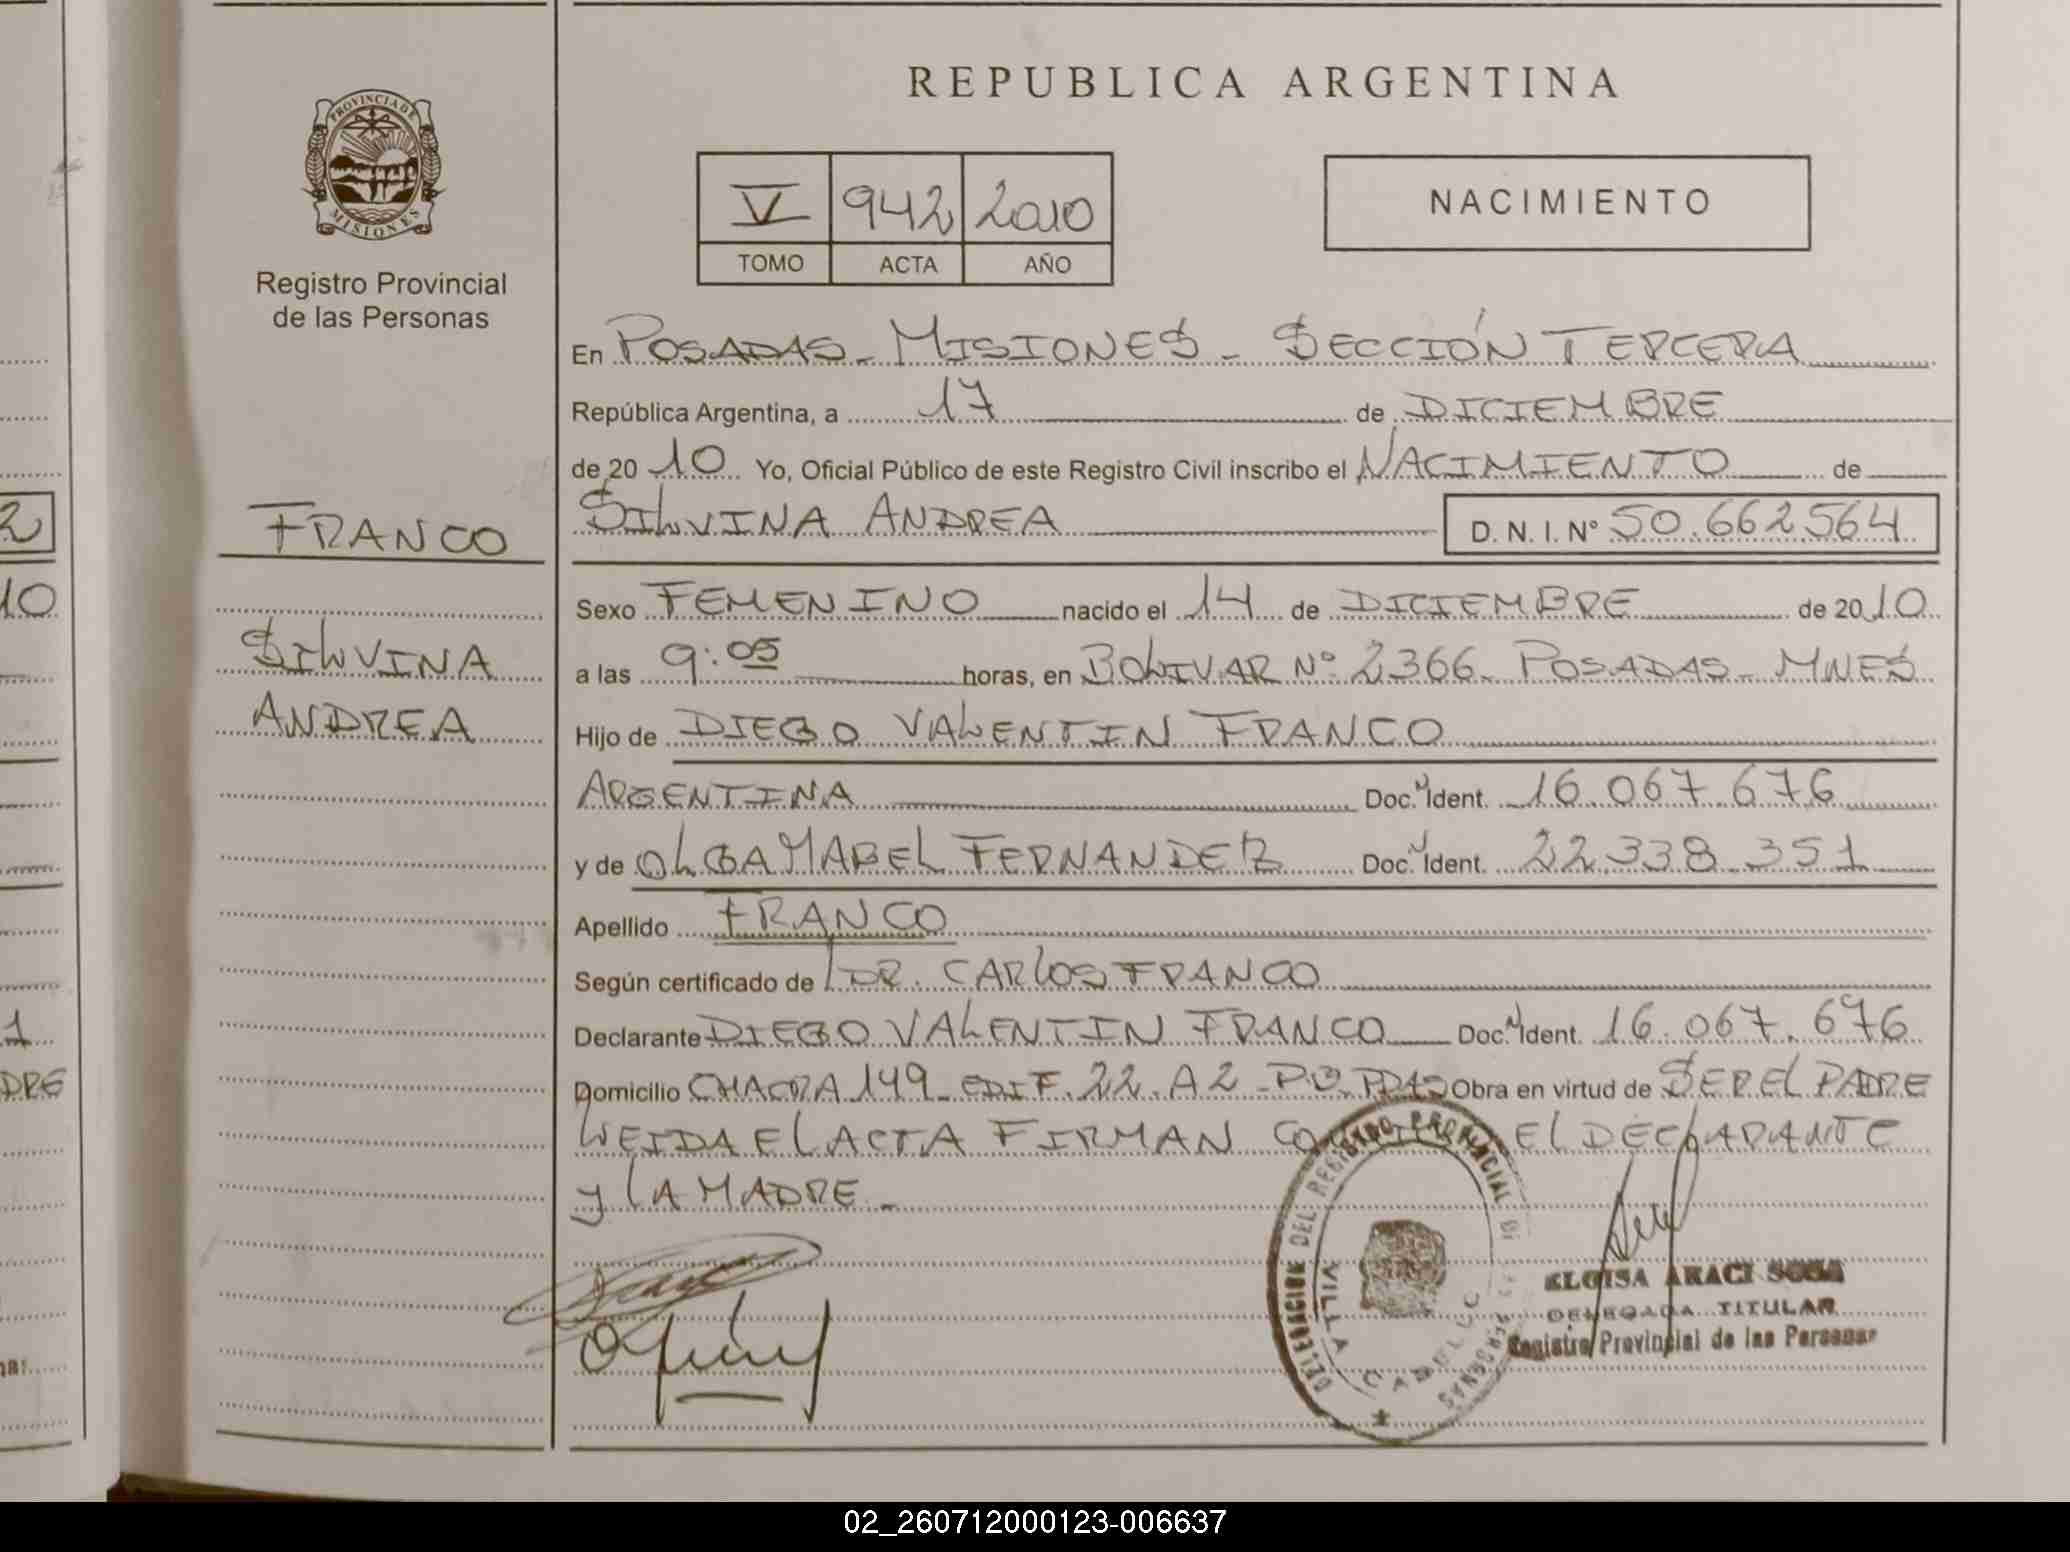 REPUBLICA ARGENTINA
PROVINCIA DE MISIONES
Registro Provincial
de las Personas
V 942 2010
TOMO ACTA AÑO
NACIMIENTO
En POSADAS - MISIONES - SECCIÓN TERCERA
República Argentina, a 17 de DICIEMBRE
de 2010 Yo, Oficial Público de este Registro Civil inscribo el NACIMIENTO de
SILVINA ANDREA D. N. I. Nº 50.662564
FRANCO
SILVINA
ANDREA
Sexo FEMENINO nacido el 14 de DICIEMBRE de 2010
a las 9:05 horas, en BOLIVAR Nº 2366 - POSADAS - MNES
Hijo de DIEGO VALENTIN FRANCO
ARGENTINA Doc. Ident. 16.067.676
y de OLGA MABEL FERNANDEZ Doc. Ident. 22.338.351
Apellido FRANCO
Según certificado de DR. CARLOS FRANCO
Declarante DIEGO VALENTIN FRANCO Doc. Ident. 16.067.676
Domicilio CHACRA 149 - EDIF. 22. A2 - Obra en virtud de SER EL PADRE
LEIDA EL ACTA FIRMAN EL DECLARANTE
Y LA MADRE.-
DELEGACION DEL REGISTRO PROVINCIAL DE LAS PERSONAS
VILLA CABELLO
ELOISA ARACI SOSA
DELEGADA TITULAR
Registro Provincial de las Personas
2
10
1
DRE
02_260712000123-006637